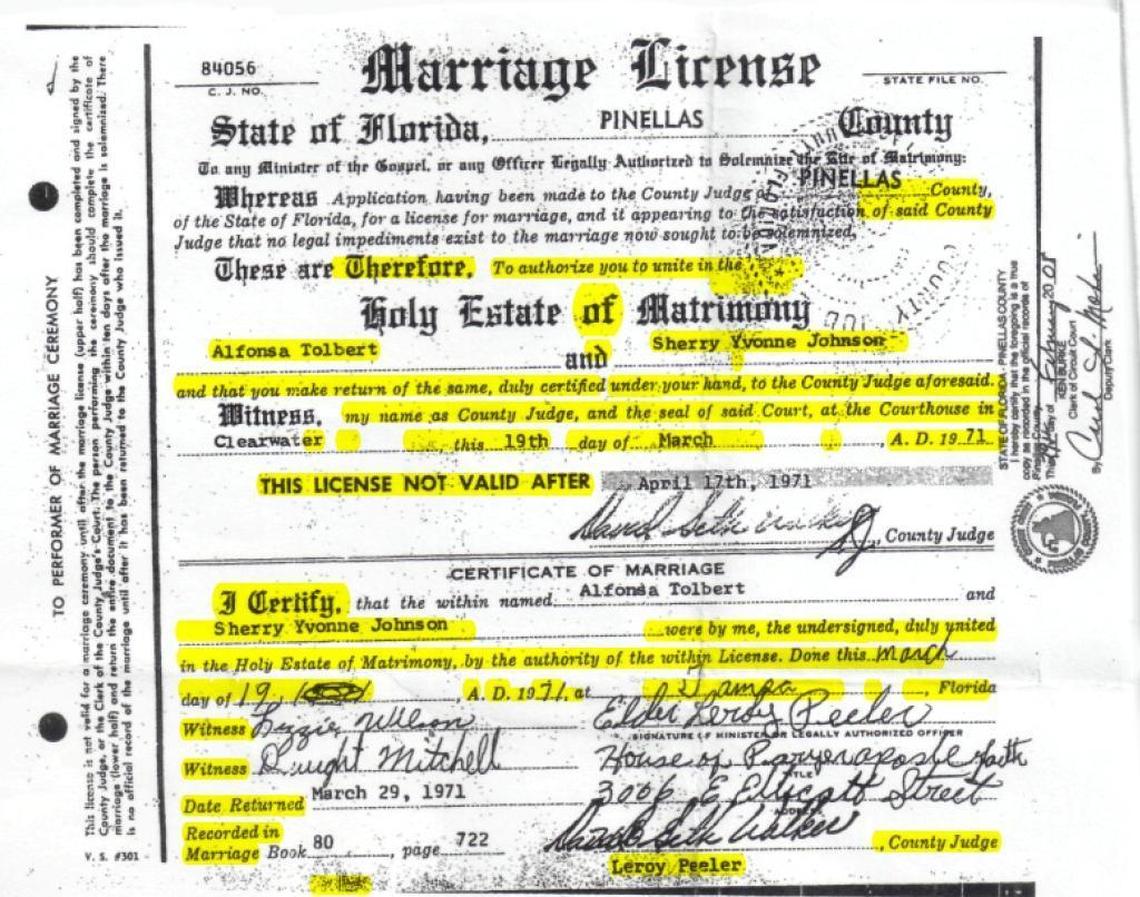 84056
C. J. NO.
Marriage License
STATE FILE NO.
State of Florida, PINELLAS County
To any Minister of the Gospel, or any Officer Legally Authorized to Solemnize the Rite of Matrimony:
PINELLAS
Whereas Application having been made to the County Judge of County,
of the State of Florida, for a license for marriage, and it appearing to the satisfaction of said County
Judge that no legal impediments exist to the marriage now sought to be solemnized,
These are Therefore, To authorize you to unite in the
Holy Estate of Matrimony
Alfonsa Tolbert and Sherry Yvonne Johnson
and that you make return of the same, duly certified under your hand, to the County Judge aforesaid.
Witness, my name as County Judge, and the seal of said Court, at the Courthouse in
Clearwater this 19th day of March, A. D. 1971
THIS LICENSE NOT VALID AFTER April 17th, 1971
, County Judge
CERTIFICATE OF MARRIAGE
I Certify, that the within named Alfonsa Tolbert and
Sherry Yvonne Johnson were by me, the undersigned, duly united
in the Holy Estate of Matrimony, by the authority of the within License. Done this March
day of 19, A. D. 1971, at Tampa, Florida
Witness Lizzie Wilson Elder Leroy Peeler
SIGNATURE OF MINISTER OR LEGALLY AUTHORIZED OFFICER
Witness Dwight Mitchell House of Prayer
TITLE
3006 E Ellicott Street
ADDRESS
Date Returned March 29, 1971
David Seth Walker, County Judge
Recorded in
Marriage Book 80, page 722
Leroy Peeler
TO PERFORMER OF MARRIAGE CEREMONY
This license is not valid for a marriage ceremony until after the marriage license (upper half) has been completed and signed by the
County Judge, or the Clerk of the County Judge's Court. The person performing the ceremony should complete the certificate of
marriage (lower half) and return the entire document to the County Judge within ten days after the marriage is solemnized. There
is no official record of the marriage until after it has been returned to the County Judge who issued it.
V. S. #301
STATE OF FLORIDA - PINELLAS COUNTY
I hereby certify that the foregoing is a true
copy as recorded in the official records of
Pinellas County.
KEN BURKE
Clerk of Circuit Court
By
Deputy Clerk